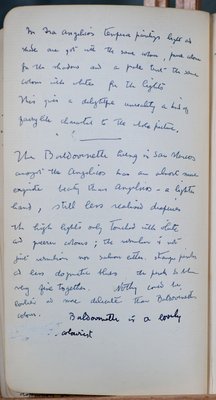 In Fra Angelico's tempera paintings light and
shade are got with the same colour, pure colour
for the shadows and a paler tint the same
colour into white for the lights
This gives a delightful unreality a kind of
fairylike character to the whole picture.
The Baldovinetti hung in San Marco
amongst the Angelicos has an almost more
exquisite beauty than Angelicos – a lighter
hand, still less realised draperies
the high lights only touched with slate
and green colours; the vermilion is not
vermilion nor salmon either. strange pinks
a less dogmatic blue. the pink & blue
very fine together. Nothing could be
more delicate than Baldovinetti
colour. Baldovinetti is a lovely
colourist